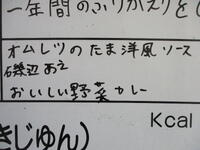 一年間のふりかえりをし
オムレツのたま洋風ソース
磯辺あえ
おいしい野菜カレー
Kcal
きじゅん)